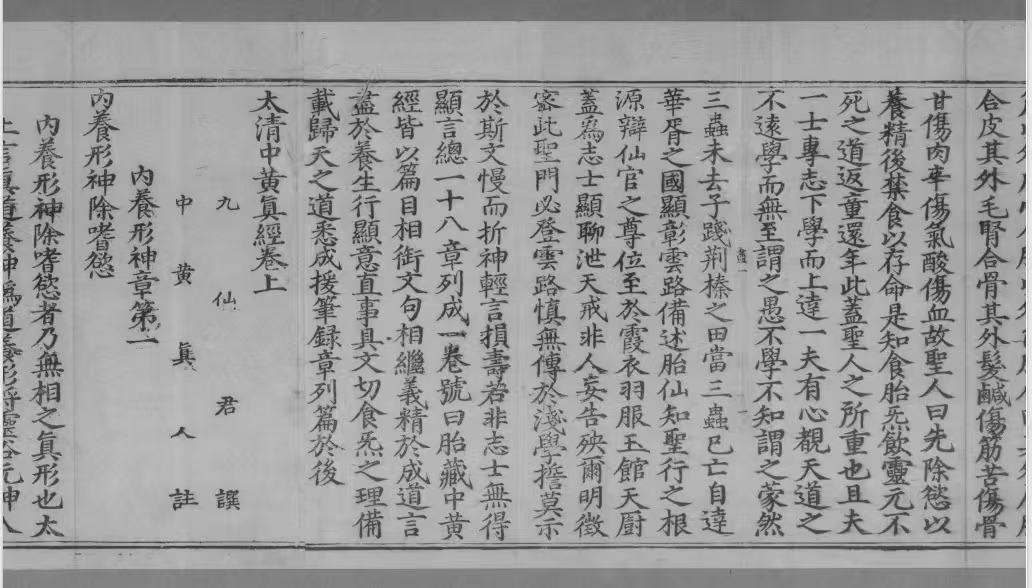 合皮其外毛腎合骨其外髮鹹傷筋苦傷骨
甘傷肉辛傷氣酸傷血故聖人曰先除慾以
養精後禁食以存命是知食胎炁飲靈元不
死之道返童還年此蓋聖人之所重也且夫
一士專志下學而上達一夫有心覩天道之
不遠學而無至謂之愚不學不知謂之蒙然
三蟲未去子踐荆榛之田當三蟲已亡自達
華胥之國顯彰雲路備述胎仙知聖行之根
源辯仙官之尊位至於霞衣羽服玉館天厨
蓋爲志士顯聊泄天戒非人妄告殃爾明徵
審此聖門必登雲路慎無傳於淺學擔莫示
於斯文慢而折神輕言損壽若非志士無得
顯言總一十八章列成一卷號曰胎藏中黄
經皆以篇目相銜文句相繼義精於成道言
盡於養生行顯意直事具文切食炁之理備
載歸天之道悉成援筆録章列篇於後
太清中黄眞經卷上
九仙君譔
中黄眞人註
内養形神章第一
内養形神除嗜慾
内養形神除嗜慾者乃無相之眞形也太